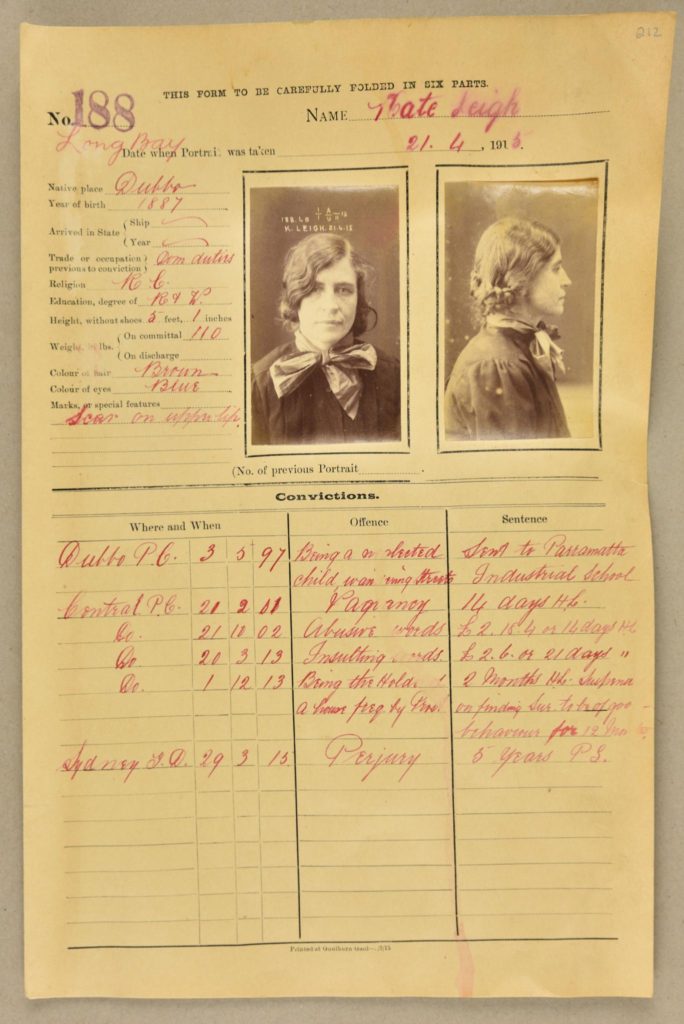 212
THIS FORM TO BE CAREFULLY FOLDED IN SIX PARTS.
No. 188 NAME Kate Leigh
Long Bay
Date when Portrait was taken 21. 4. , 1915.
Native place Dubbo
Year of birth 1887
Arrived in State { Ship
{ Year
Trade or occupation } Dom duties
previous to conviction }
Religion R C.
Education, degree of R & W.
Height, without shoes 5 feet, 1 inches
Weight in lbs. { On committal 110
{ On discharge
Colour of hair Brown
Colour of eyes Blue
Marks, or special features
Scar on upper lip.
188. LB
K. LEIGH. 21.4.15
(No. of previous Portrait .
Convictions.
Where and When Offence Sentence
Dubbo P.C. 3 5 97 Being a neglected Sent to Parramatta
child wandering streets Industrial School
Central P.C. 21 2 01 Vagrancy 14 days H.L.
Do. 21 10 02 Abusive words £2. 15.4 or 14 days HL
Do 20 3 13 Insulting words. £2.6. or 21 days "
Do. 1 12 13 Being the Holder 2 Months HL. Suspend
a house freq by Pros on finding Sur. to be of goo
behaviour for 12 Mon
Sydney Q.D. 29 3 15. Perjury 5 Years P.S.
Printed at Goulburn Gaol—